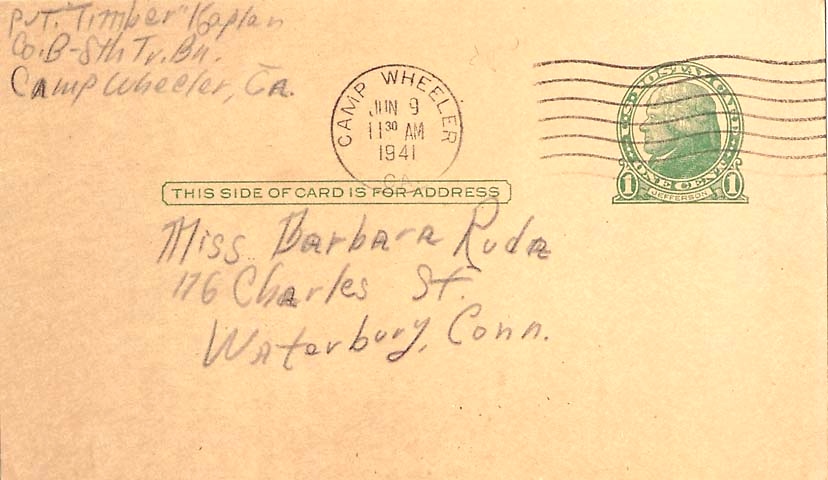 Pvt. "Timber" Kaplan
Co. B-8th Tr. Bn.
Camp Wheeler, Ga.
CAMP WHEELER
JUN 9
11 30 AM
1941
GA.
U.S. POSTAL CARD
ONE CENT
1 JEFFERSON 1
THIS SIDE OF CARD IS FOR ADDRESS
Miss Barbara Ruda
176 Charles St.
Waterbury, Conn.